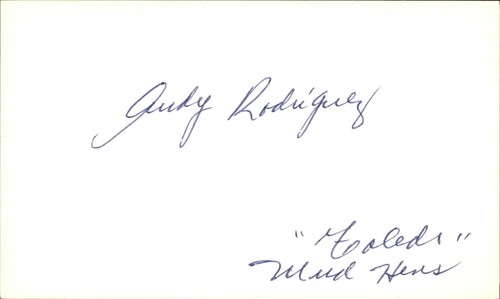 Andy Rodriguez
"Toledo"
Mud Hens